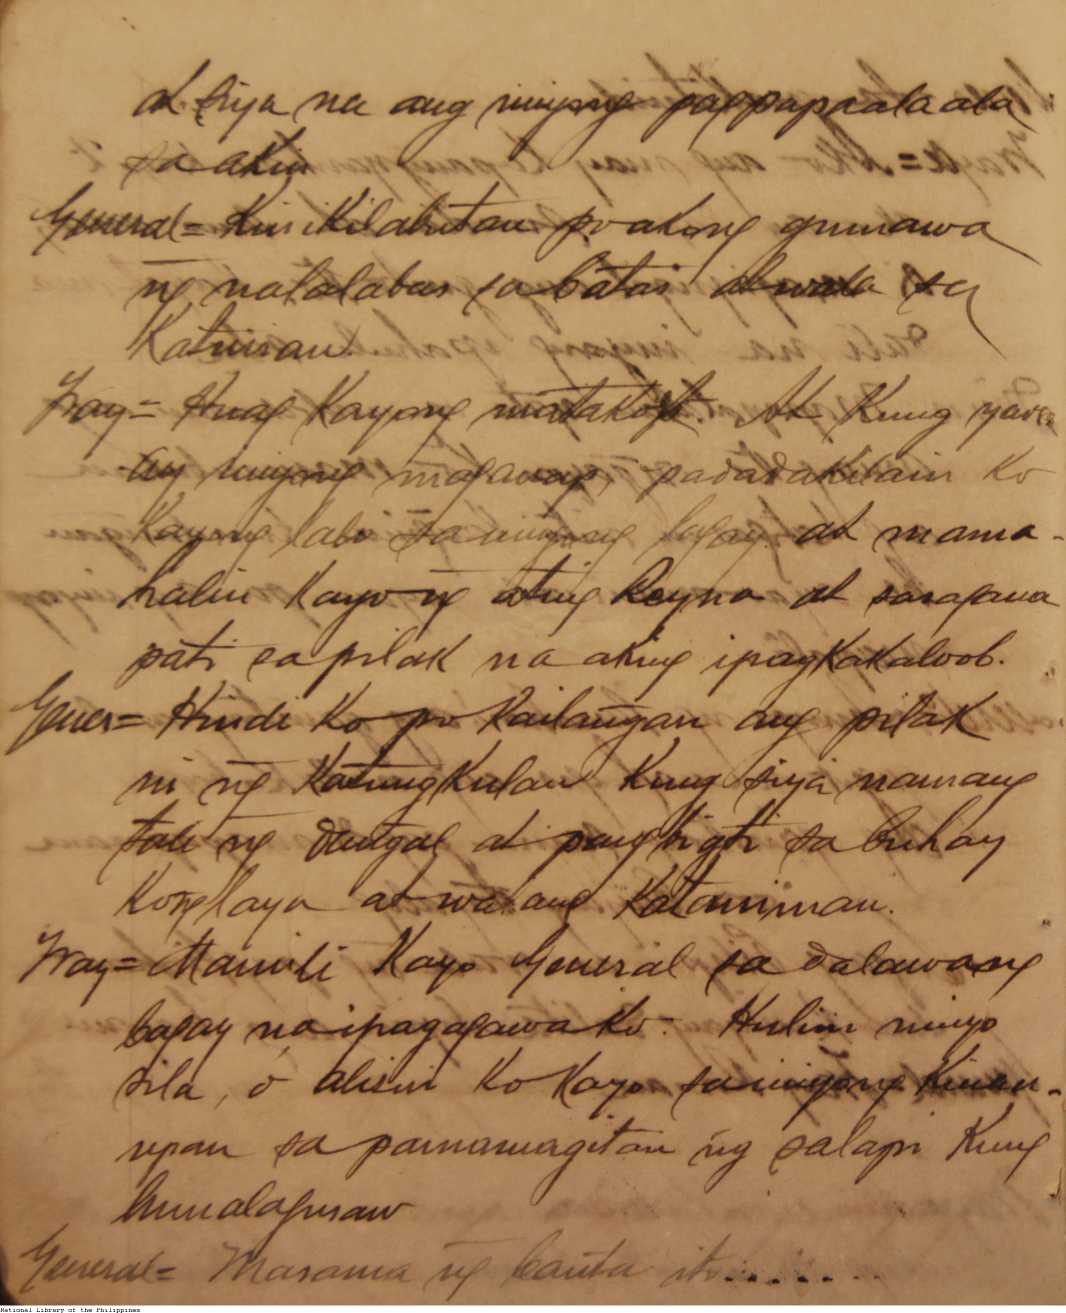 at siya na ang ninyong pagpapaalaala
sa akin
General = Kinikilabutan po akong gumawa
ng nalalabas sa batas at wala sa
Katuiran.
Fray = Huag Kayong matakot. At Kung
ay ninyong magawa, padadakilain Ko
Kayong labi sa inyong lagay at mama-
halin Kayo ng ating Reyna at sasagana
pati sa pilak na aking ipagkakaloob.
Gener = Hindi Ko po Kailangan ang pilak
ni ng Katungkulan Kung siya namang
tali ng dangal at pangbigti sa buhay
Kong laya at walang Kataniman.
Fray = Mamili Kayo General sa dalawang
bagay na ipagagawa Ko. Hulin ninyo
sila, o alisin Ko Kayo sa inyong Kinau-
upan sa pamamagitan ng salapi Kong
bumalagusaw
General = Masama ng banta ito........
National Library of the Philippines